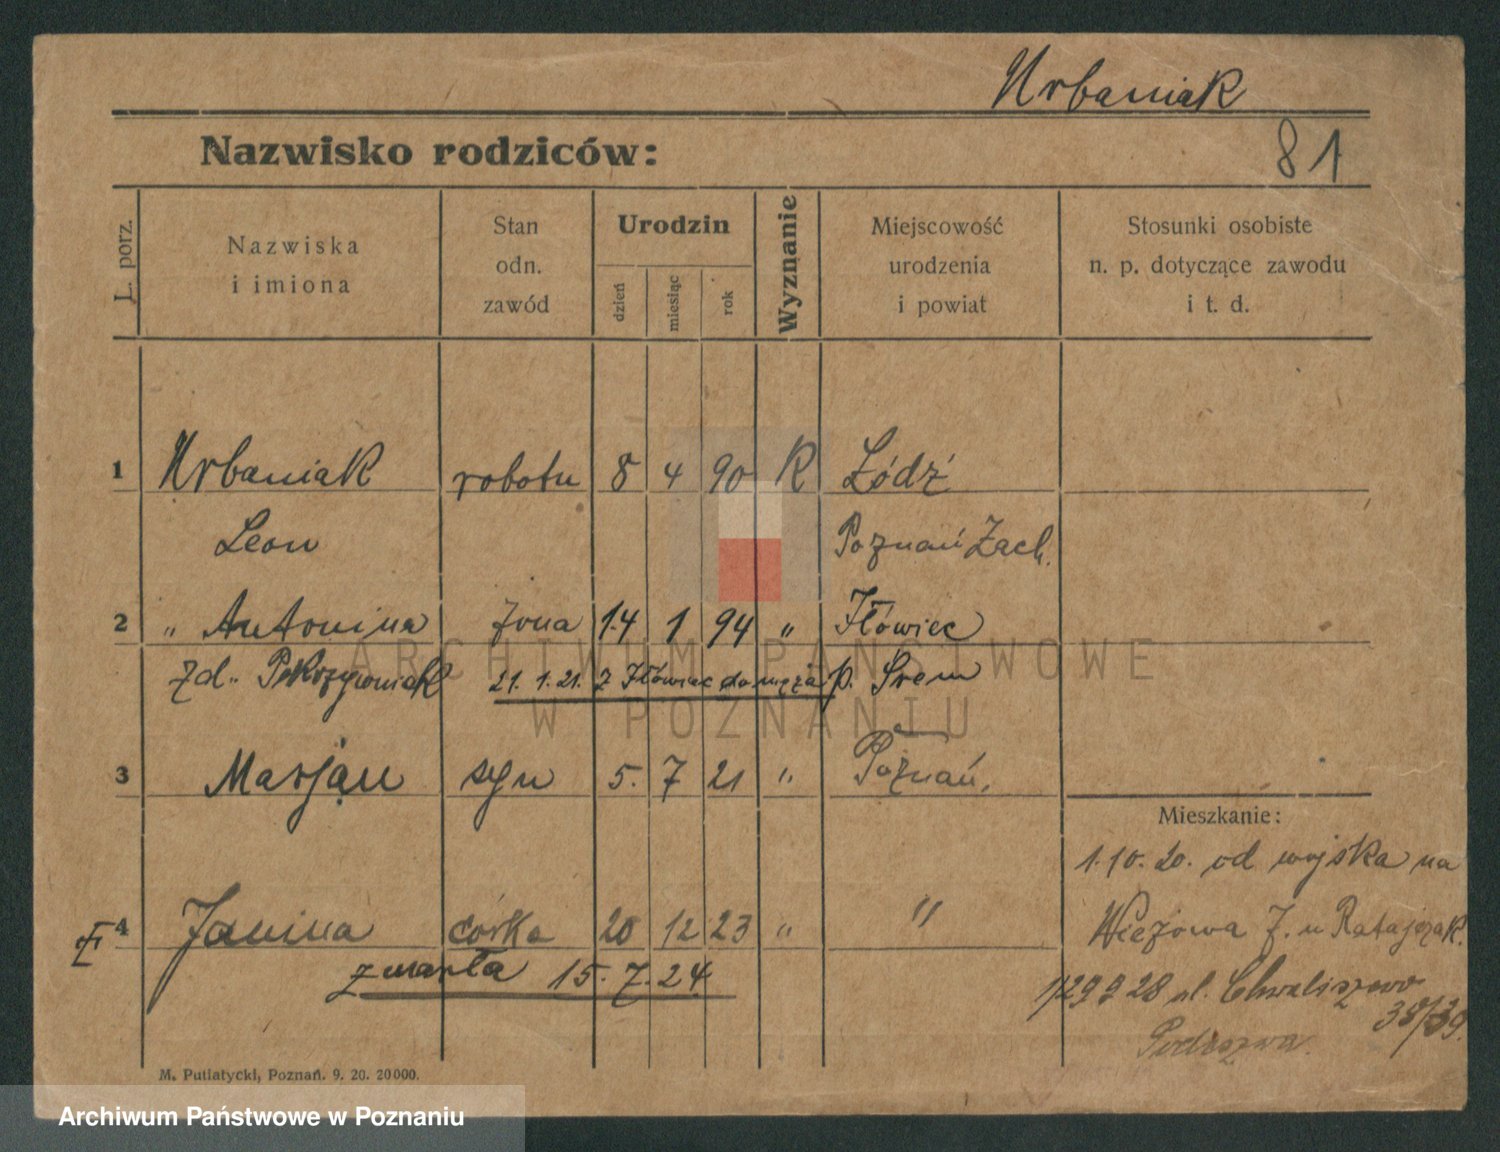 Urbaniak
81
Nazwisko rodziców:
L. porz.
Nazwiska
i imiona
Stan
odn.
zawód
Urodzin
dzień
miesiąc
rok
Wyznanie
Miejscowość
urodzenia
i powiat
Stosunki osobiste
n. p. dotyczące zawodu
i t. d.
1 Urbaniak robotn 8 4 90 R Łódź
Leon Poznań Zach.
2 " Antonina żona 14 1 94 " Iłówiec
zd. 21. 1. 21. z Iłówiec do męża p. Śrem
3 Marjan syn 5. 7 21 " Poznań,
Mieszkanie:
1. 10. 20. od wojska na
4 Janina córka 20 12 23 " " Wieżowa 7. u Ratajczak.
zmarła 15. 7. 24.
1/2 9 28 ul. Chwaliszewo
38/39.
Podeszwa.
M. Putiatycki, Poznań. 9. 20. 20000.
ARCHIWUM PAŃSTWOWE
W POZNANIU
Archiwum Państwowe w Poznaniu